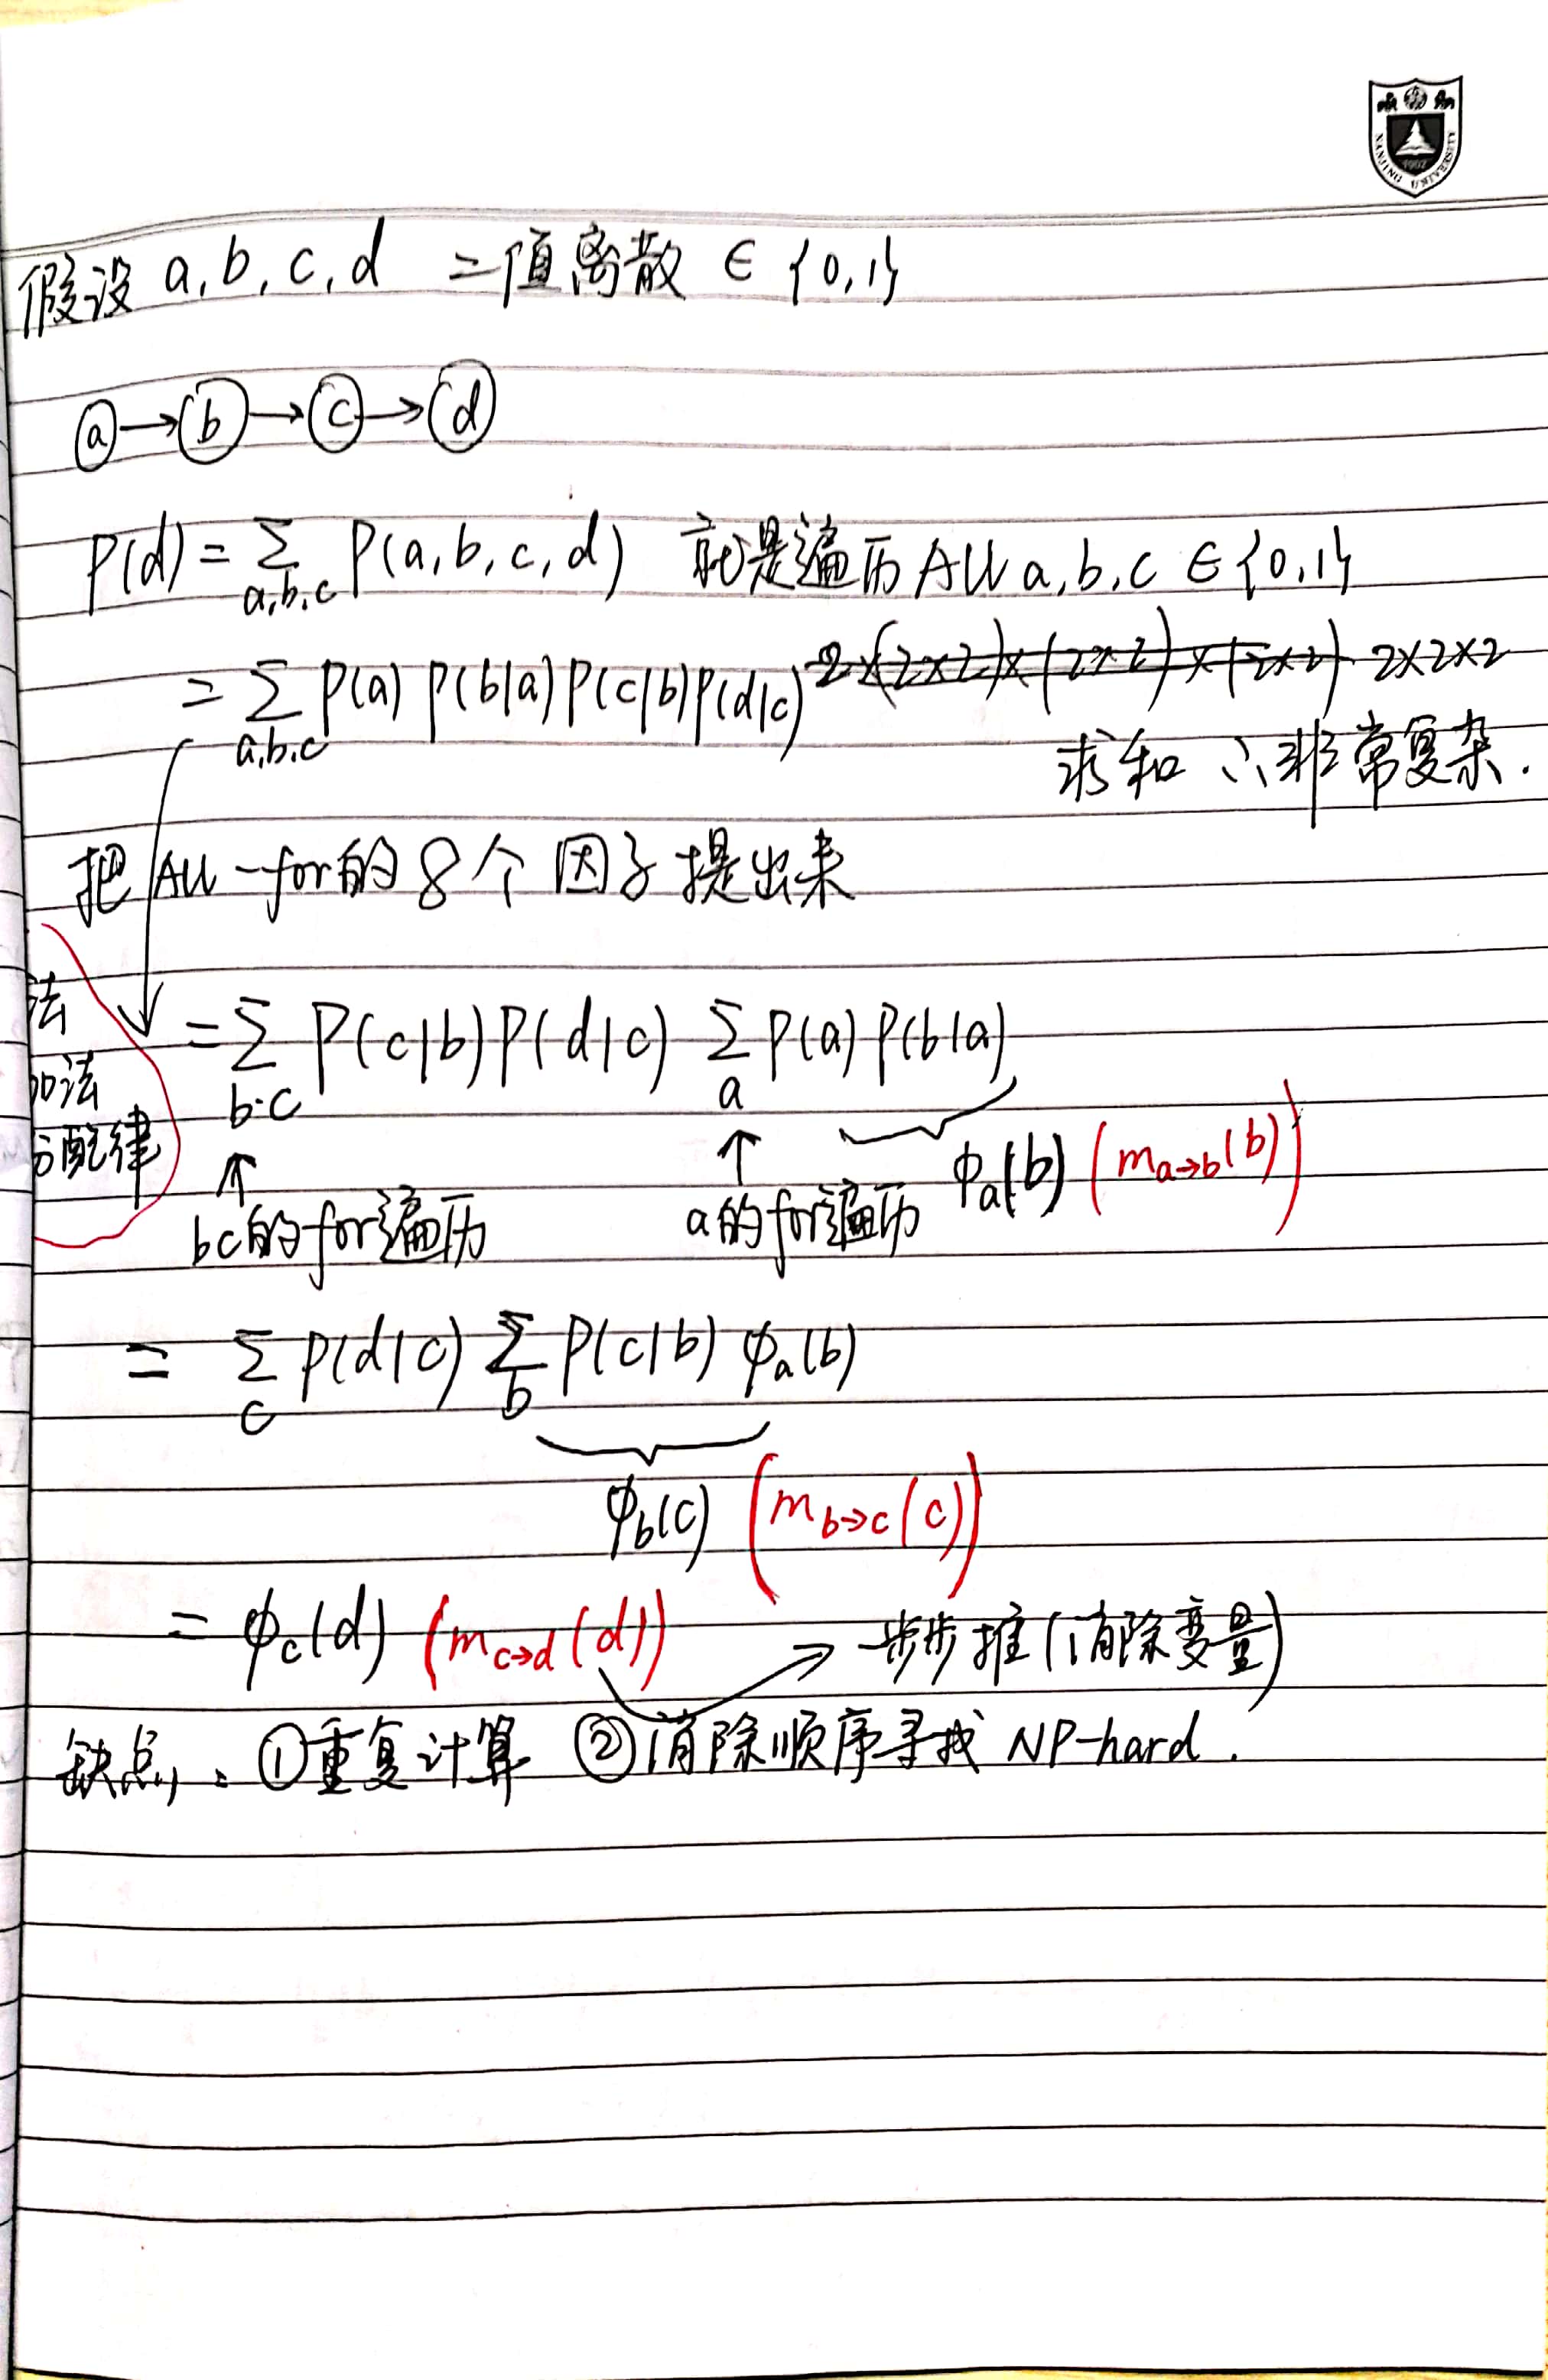 NANJING UNIVERSITY
1902
假设 a, b, c, d 二值离散 ∈ {0,1}
a → b → c → d
P(d) = Σ_{a,b,c} P(a, b, c, d) 就是遍历 All a, b, c ∈ {0,1}
= Σ_{a,b,c} P(a) P(b|a) P(c|b) P(d|c) 2×(2×2)×(2×2)×(2×2) 2×2×2
求和 ∴非常复杂.
把 All-for的 8个 因子提出来
法
加法
分配律
= Σ_{b·c} P(c|b) P(d|c) Σ_a P(a) P(b|a)
↑ ↑ φa(b) (m_{a→b}(b))
bc的for遍历 a的for遍历
= Σ_c P(d|c) Σ_b P(c|b) φa(b)
φb(c) (m_{b→c}(c))
= φc(d) (m_{c→d}(d)) → 一步步推(消除变量)
缺点: ①重复计算 ②消除顺序寻找 NP-hard.